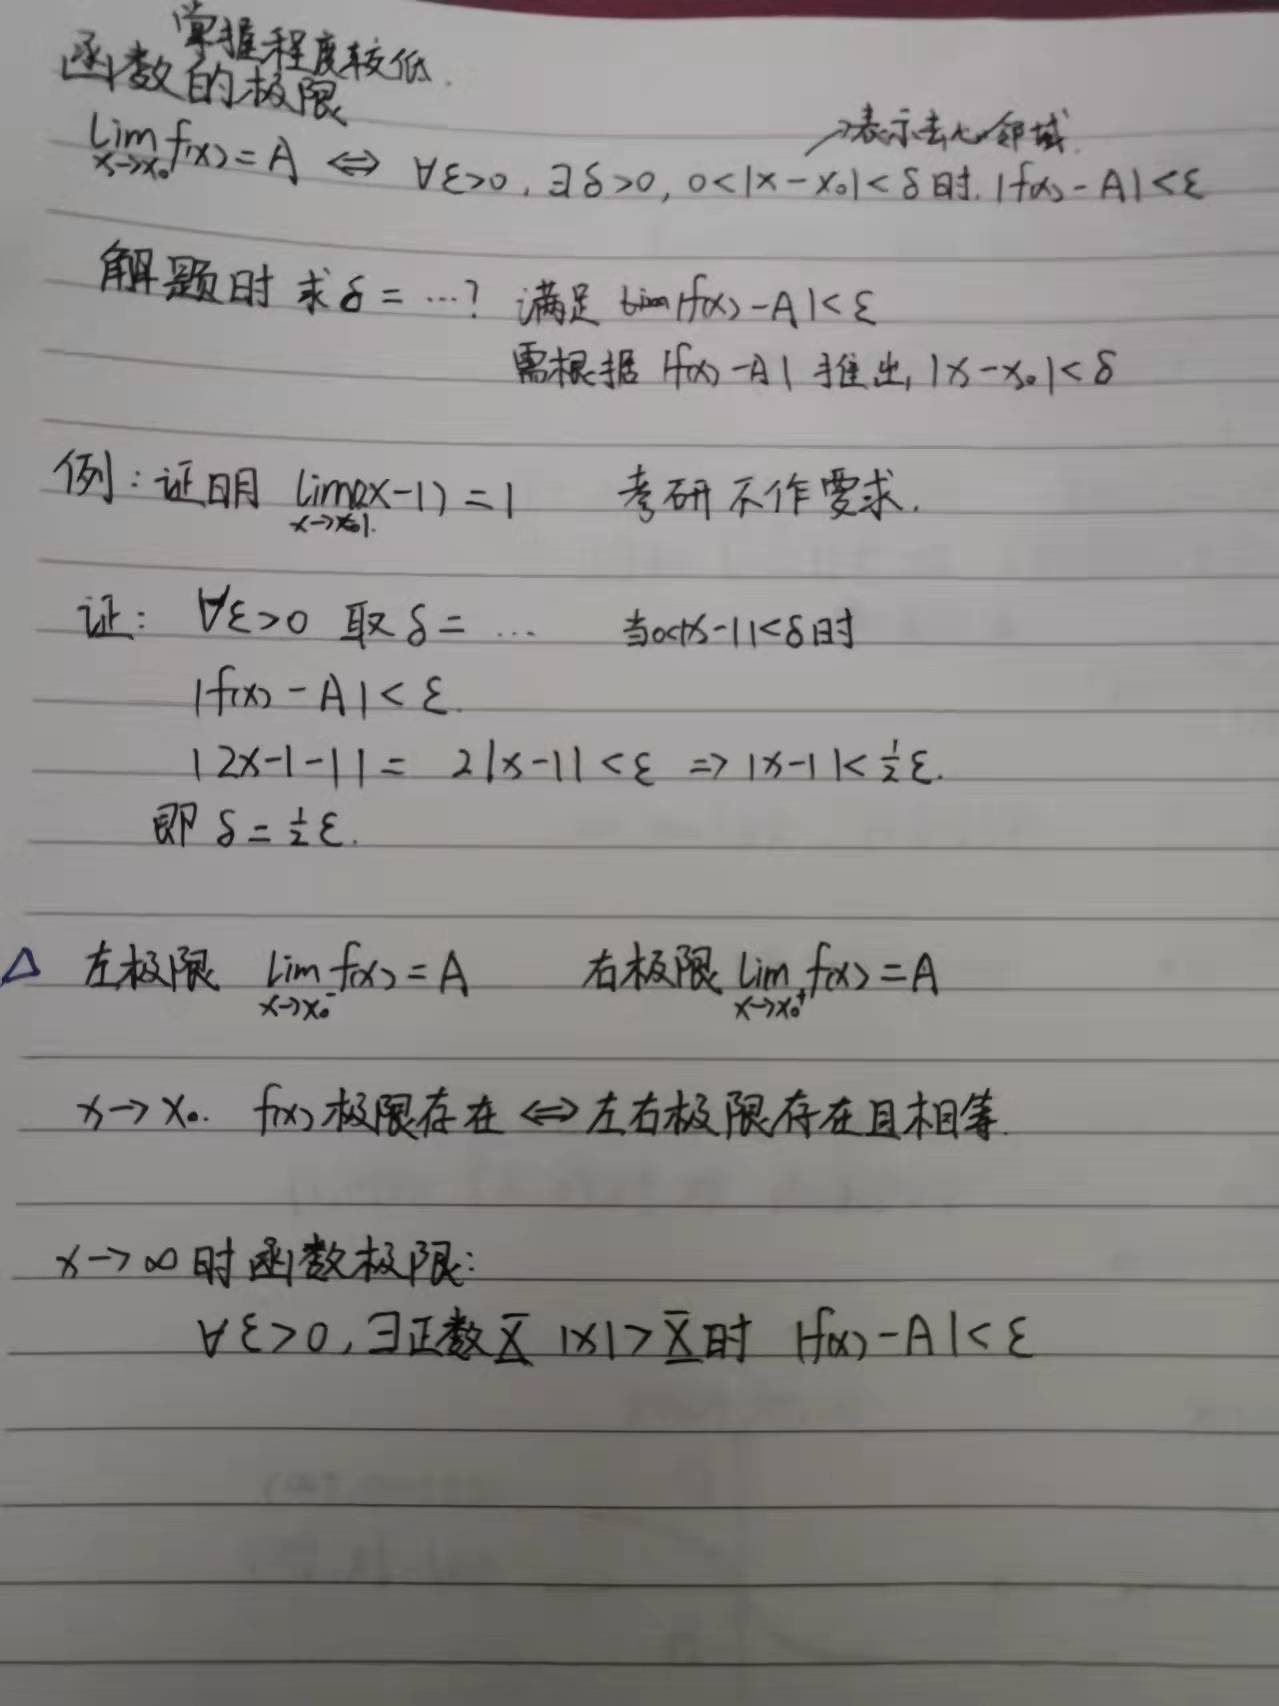 掌握程度较低.
函数的极限
lim f(x) = A ⇔ ∀ε>0, ∃δ>0, 0<|x-x₀|<δ时. |f(x)-A|<ε
x→x₀
→表示去心邻域.
解题时 求δ = …? 满足 lim|f(x)-A|<ε
需根据 |f(x)-A| 推出, |x-x₀|<δ
例: 证明 lim(2x-1)=1 考研不作要求.
x→1.
证: ∀ε>0 取δ= … 当0<|x-1|<δ时
|f(x)-A|<ε.
|2x-1-1| = 2|x-1|<ε ⇒ |x-1|<½ε.
即 δ=½ε.
△ 左极限 lim f(x)=A 右极限 lim f(x)=A
x→x₀⁻ x→x₀⁺
x→x₀. f(x)极限存在 ⇔ 左右极限存在且相等.
x→∞时函数极限:
∀ε>0, ∃正数X |x|>X时 |f(x)-A|<ε